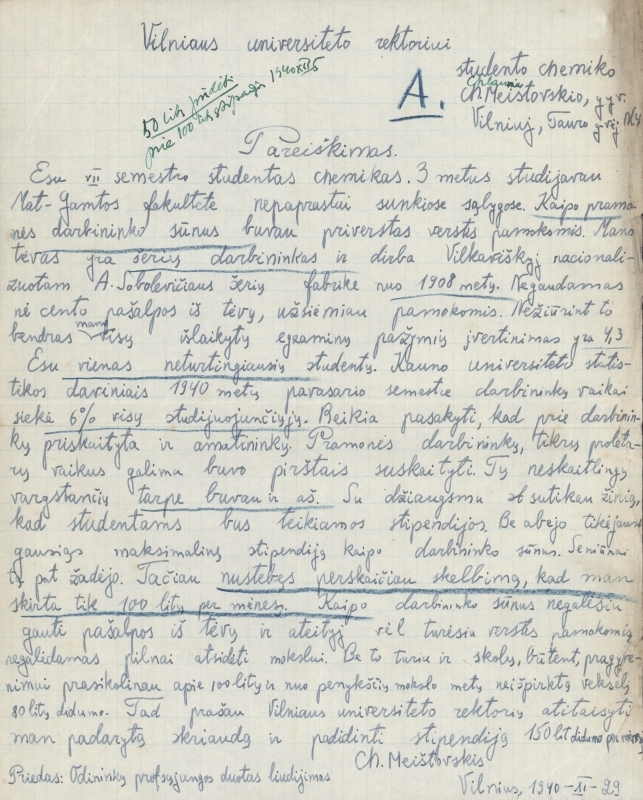 Vilniaus universiteto rektoriui
studento chemiko
Ch. Meištovskio, gyv.
Vilniuj, Tauro g-vėj
A.
50 litų pridėti
prie 100 litų stipendijos 1940 XII 5
Pareiškimas.
Esu VII semestro studentas chemikas. 3 metus studijavau
Mat-Gamtos fakultete nepaprastai sunkiose sąlygose. Kaipo pramo-
nės darbininko sūnus buvau priverstas verstis pamokomis. Mano
tėvas yra šerių darbininkas ir dirba Vilkaviškyj nacionali-
zuotam A. Sobolevičiaus šerių fabrike nuo 1908 metų. Negaudamas
nė cento pašalpos iš tėvų, užsiėmiau pamokomis. Nežiūrint to
bendras mano visų išlaikytų egzaminų pažymių įvertinimas yra 4,3
Esu vienas neturtingiausių studentų. Kauno universiteto statis-
tikos daviniais 1940 metų pavasario semestre darbininkų vaikai
siekė 6% visų studijuojunčiųjų. Beikia pasakyti, kad prie darbinin-
kų priskaityta ir amatininkų. Pramonės darbininkų, tikrų proleta-
rų vaikus galima buvo pirštais suskaityti. Tų neskaitlingų
vargstančių tarpe buvau ir aš. Su džiaugsmu sutikau žinią,
kad studentams bus teikiamos stipendijos. Be abejo tikėjausi
gausiąs maksimalinę stipendiją kaipo darbininko sūnus. Seniūnai
tą pat žadėjo. Tačiau nustebęs perskaičiau skelbimą, kad man
skirta tik 100 litų per mėnesį. Kaipo darbininko sūnus negalėsiu
gauti pašalpos iš tėvų ir ateityj vėl turėsiu verstis pamokomis
negalėdamas pilnai atsidėti mokslui. Be to turiu ir skolų, būtent, pragyve-
nimui prasikolinau apie 100 litų ir nuo pernykščių mokslo metų neišpirktą vekselį
80 litų didumo. Tad prašau Vilniaus universiteto rektorių atitaisyti
man padarytą skriaudą ir padidinti stipendiją 150 lit didumo per mėnesį
Ch. Meištovskis
Priedas: Odininkų profsąjungos duotas liudijimas
Vilnius, 1940-XI-29